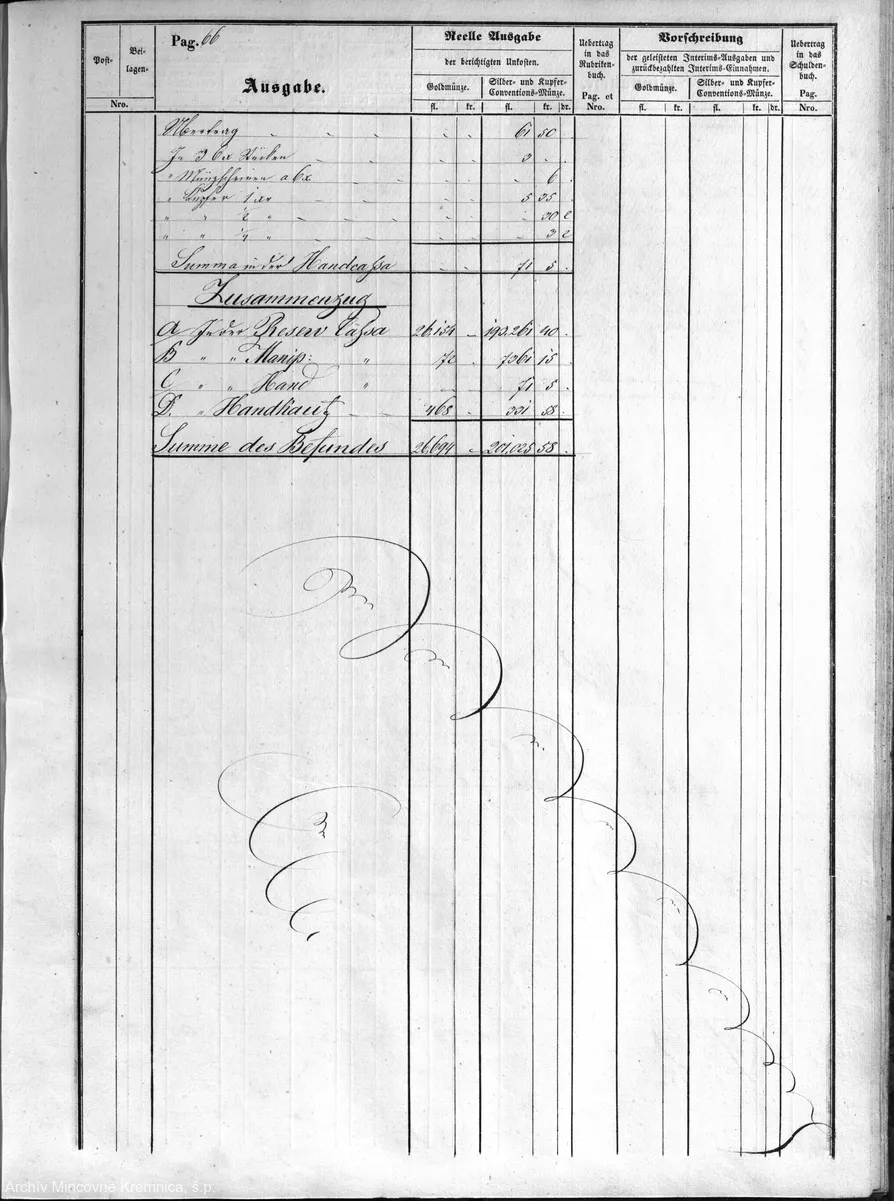 Post-
Bei-
lagen-
Nro.
Pag. 66
Ausgabe.
Reelle Ausgabe
der berichtigten Unkosten.
Goldmünze.
Silber- und Kupfer-
Conventions-Münze.
fl. kr. fl. kr. dr.
Uebertrag
in das
Rubriken-
buch.
Pag. et
Nro.
Vorschreibung
der geleisteten Interims-Ausgaben und
zurückbezahlten Interims-Einnahmen.
Goldmünze.
Silber- und Kupfer-
Conventions-Münze.
fl. kr. fl. kr. dr.
Uebertrag
in das
Schulden-
buch.
Pag.
Nro.
Übertrag - - - - - 61 50 -
In 3 6xr Stücken - - - - 3 - -
" Münzscheinen a 6x - - - - 6 -
" Kupfer 1 xr - - - 5 35 -
" " 1/2 " - - - - 30 2
" " 1/4 " - - - - 3 2
Summa in der Handcassa - - 71 5 -
Zusammenzug
A In der Reserv Cassa 26154 - 193.261 40 -
B " " Manip: " 72 - 7361 15
C " " Hand " - 71 5 -
D. " Handkautz - - 468 - 331 58 -
Summe des Befundes 26,694 - 201,025 58 -
Archív Mincovne Kremnica, š.p.